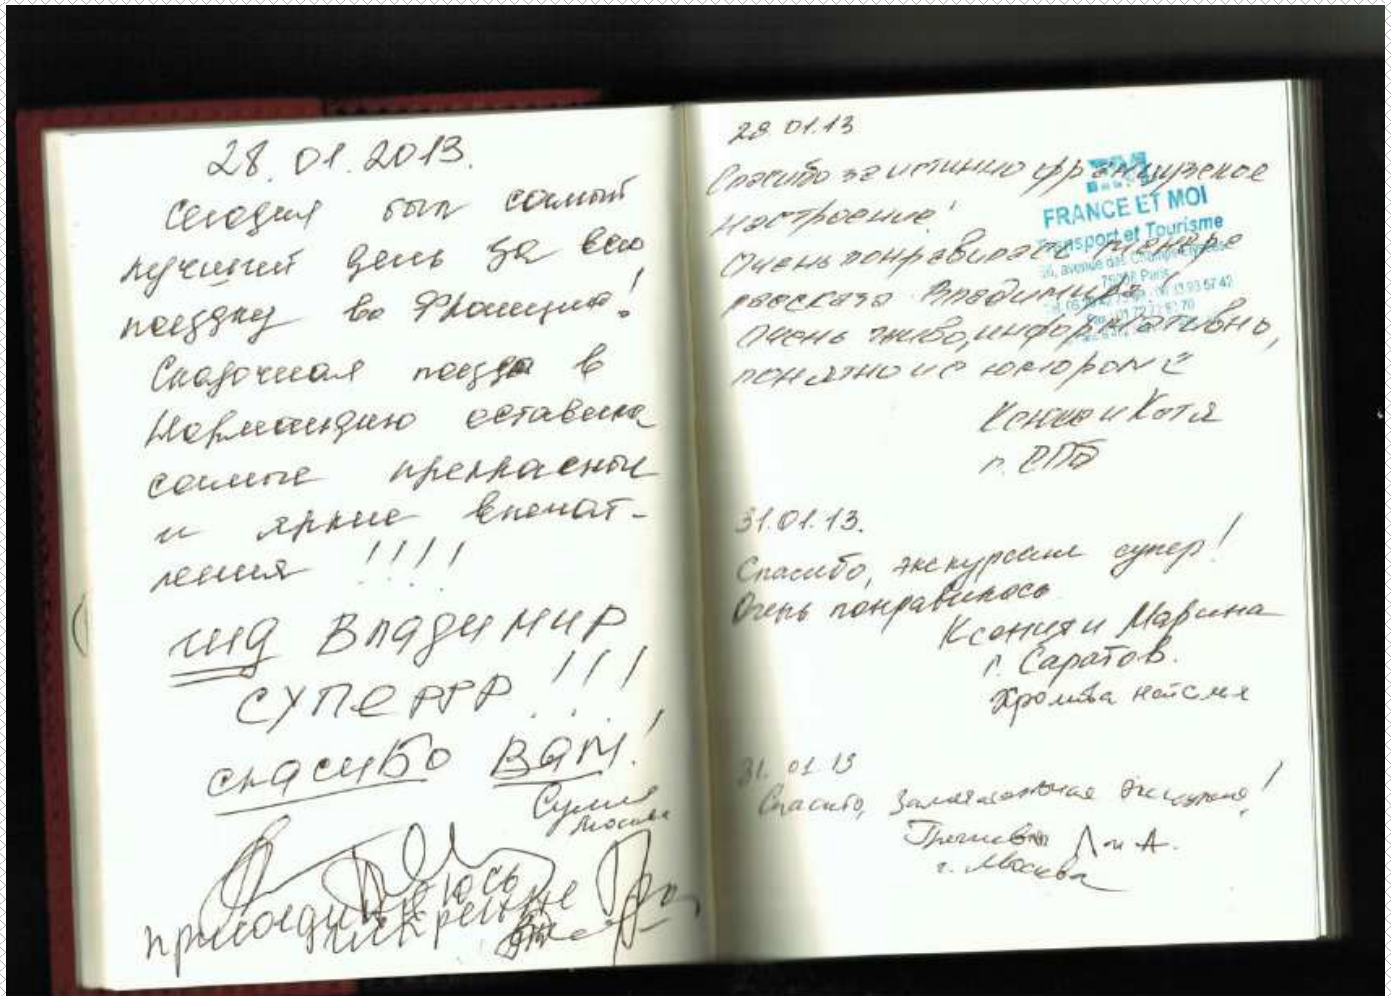 28.01.2013.
Сегодня был самый
лучший день за всю
поездку во Францию!
Сказочная поездка в
Нормандию оставила
самые прекрасные
и яркие впечат-
ления !!!!
гид Владимир
СУПЕРРР !!!
спасибо Вам!
Москва
присоединяюсь
искренне
28.01.13
Спасибо за истинно французское
настроение!
Очень понравилась манера
рассказа Владимира,
Очень живо, информативно,
понятно и с юмором
Ксения и Катя
г. СПб
FRANCE ET MOI
Transport et Tourisme
avenue des Champs Elysées
75008 Paris
31.01.13.
Спасибо, экскурсии супер!
Очень понравилось
Ксения и Марина
г. Саратов.
31.01.13
Спасибо, Замечательная экскурсия!
Л и А.
г. Москва